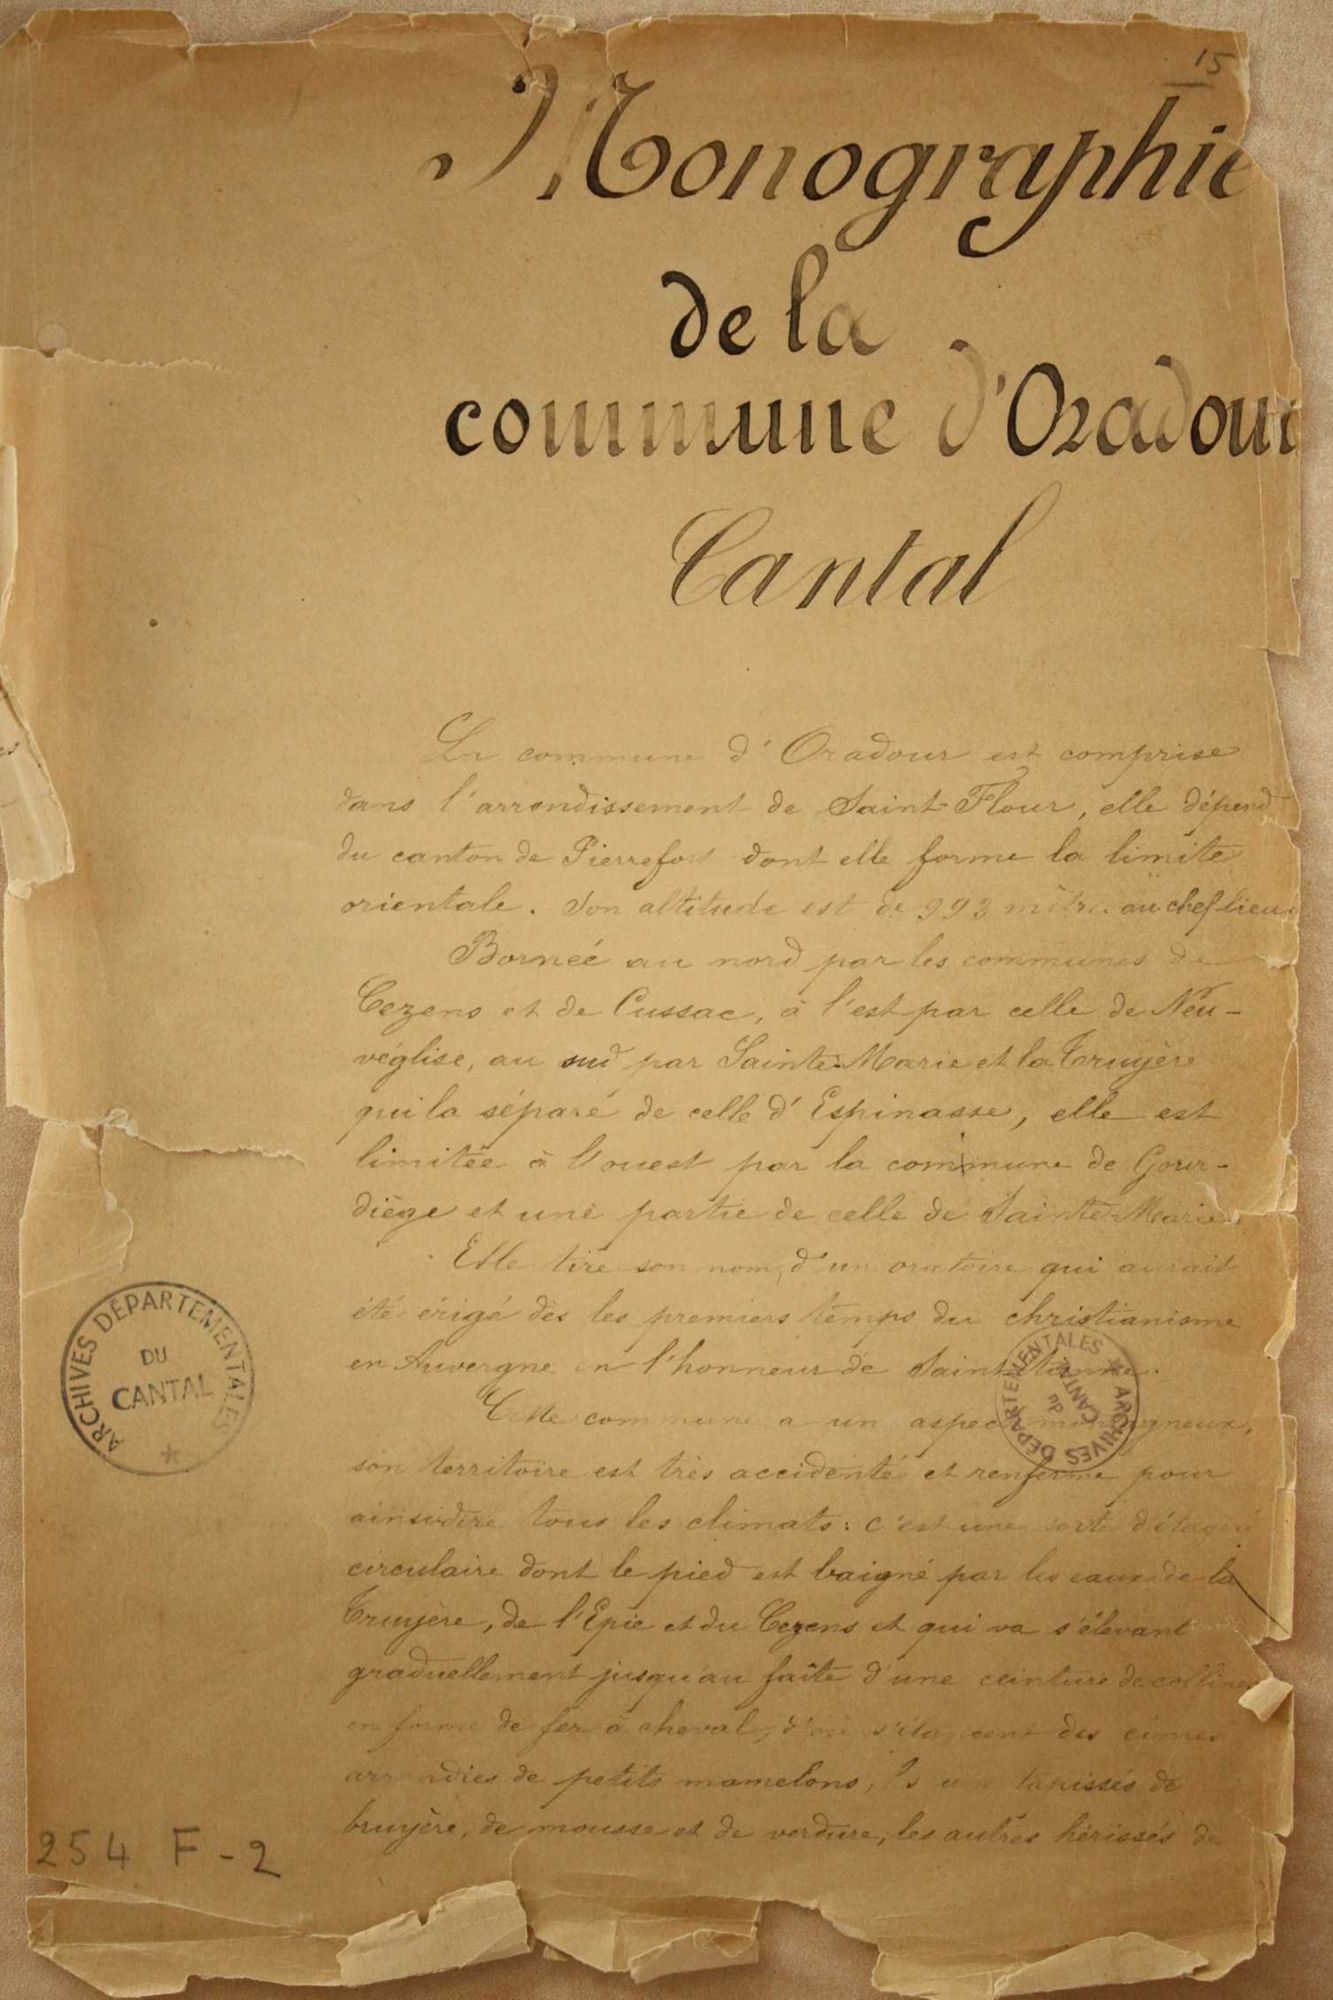 15
Monographie
de la
commune d'Oradour
Cantal
La commune d'Oradour est comprise
dans l'arrondissement de Saint-Flour, elle dépend
du canton de Pierrefort dont elle forme la limite
orientale. Son altitude est de 993 mètres au chef-lieu.
Bornée au nord par les communes de
Cezens et de Cussac, à l'est par celle de Neu-
véglise, au sud par Sainte-Marie et la Truyère
qui la séparé de celle d'Espinasse, elle est
limitée à l'ouest par la commune de Gour-
diège et une partie de celle de Sainte-Marie.
Elle tire son nom, d'un oratoire qui aurait
été érigé dès les premiers temps du christianisme
en Auvergne en l'honneur de Saint-Etienne.
Cette commune a un aspect montagneux,
son territoire est très accidenté et renferme pour
ainsi dire tous les climats: c'est une sorte d'étagère
circulaire dont le pied est baigné par les eaux de la
Truyère, de l'Epie et du Cezens et qui va s'élevant
graduellement jusqu'au faîte d'une ceinture de collines
en forme de fer à cheval, d'où s'élancent des cimes
arrondies de petits mamelons, les uns tapissés de
bruyère, de mousse et de verdure, les autres hérissés de
ARCHIVES DÉPARTEMENTALES
DU
CANTAL
ARCHIVES DÉPARTEMENTALES
du
CANTAL
254 F-2